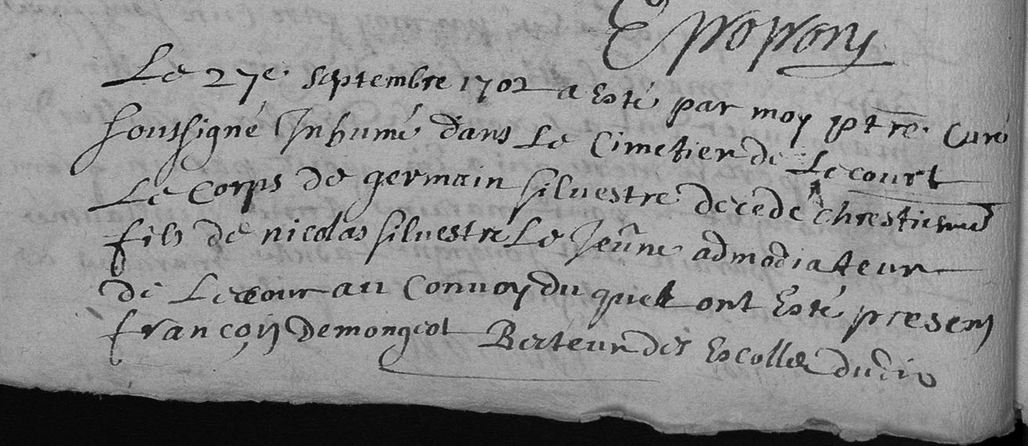 Le 27e. septembre 1702 a Esté par moy ptre. Curé
soussigné Inhumé dans Le Cimetier de Lecourt
Le Corps de germain silvestre decedé chrestienne
fils de nicolas silvestre Le Jeune admodiateur
de Lecour au Convoy du quel ont Esté presens
françois Demongeot Recteur des Escolles dud